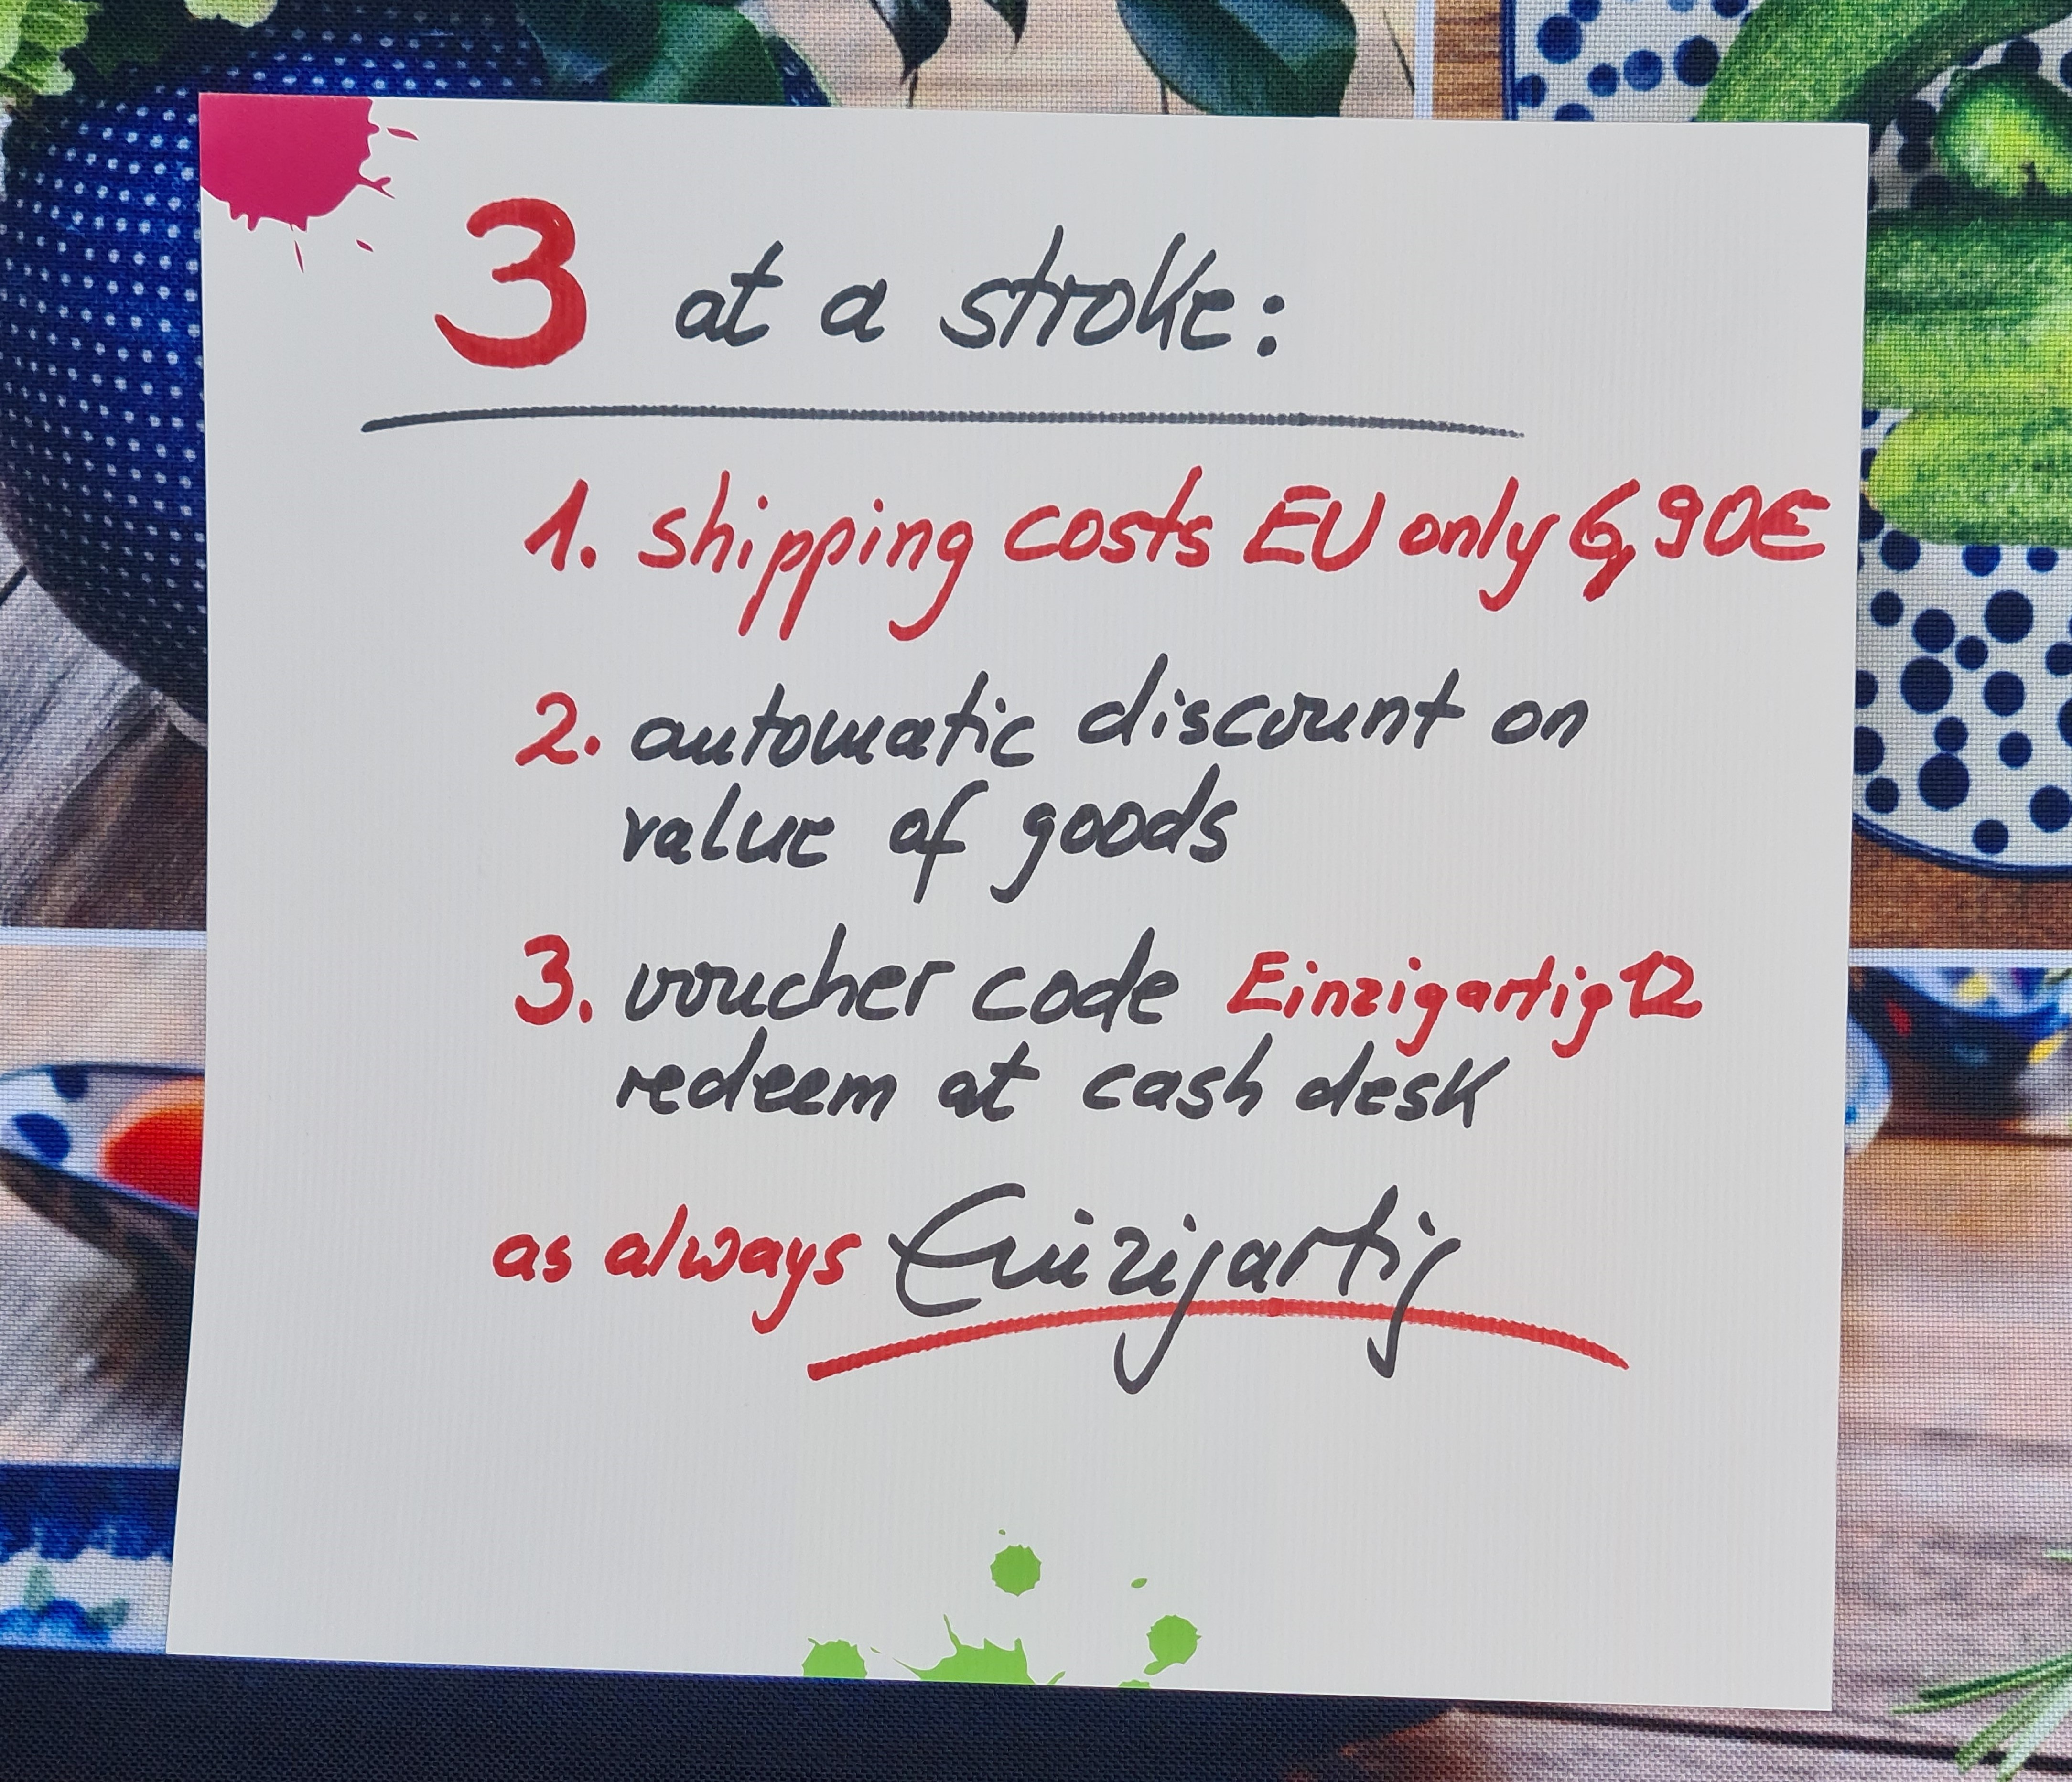 3 at a stroke:
1. shipping costs EU only 6,90€
2. automatic discount on
value of goods
3. voucher code Einzigartig12
redeem at cash desk
as always Einzigartig